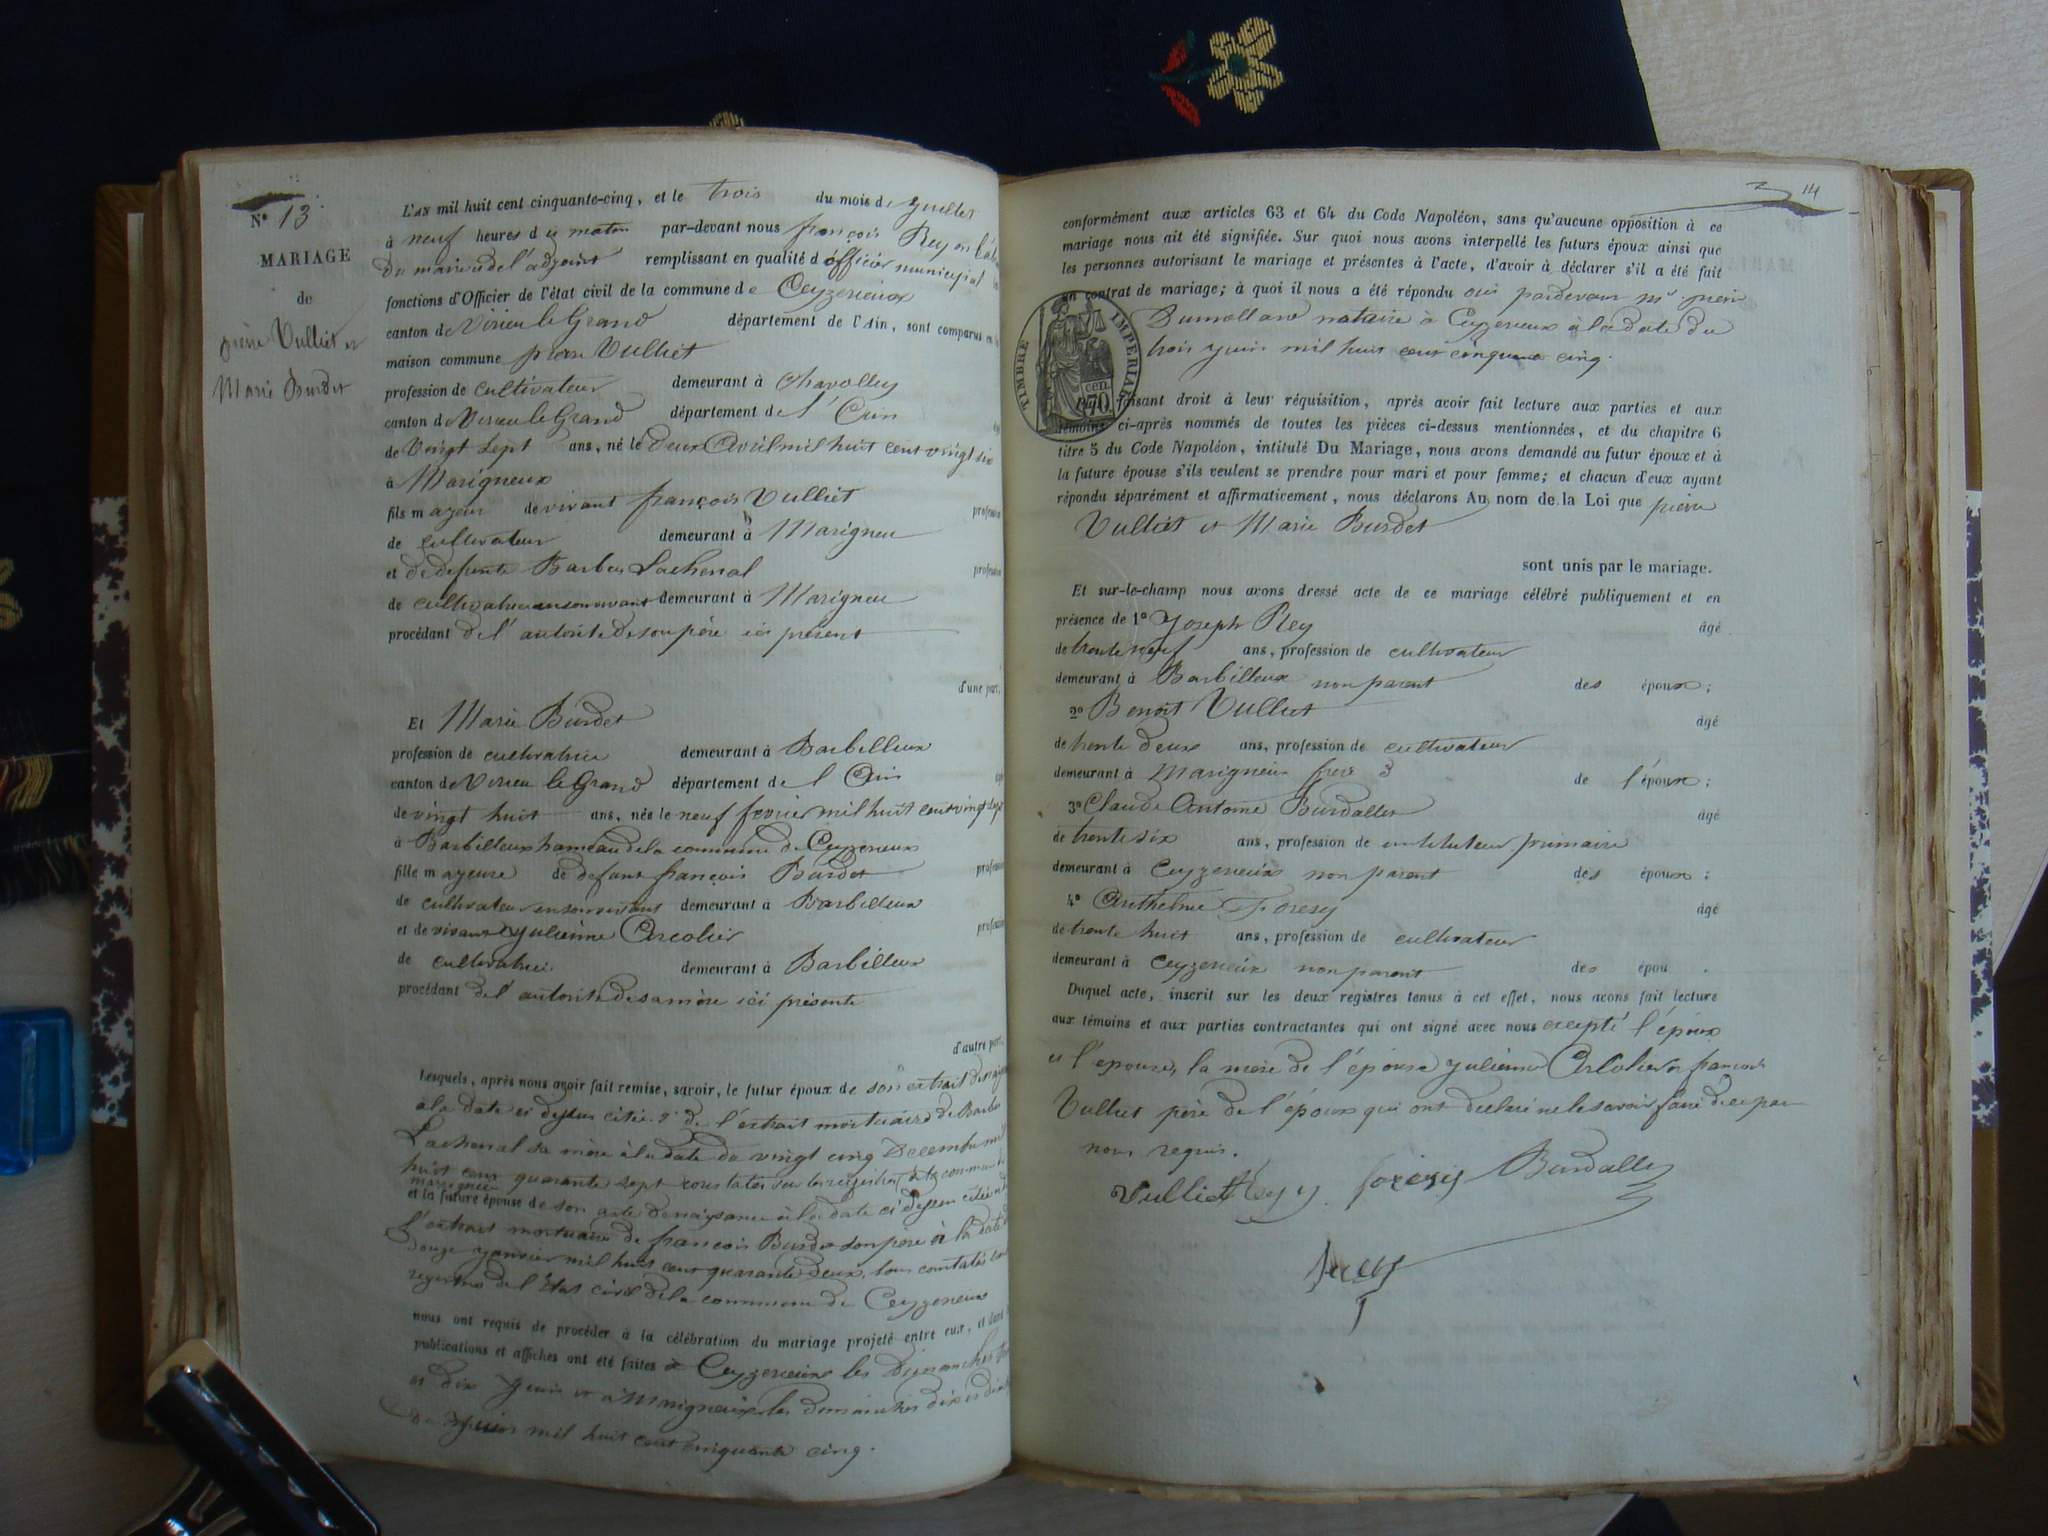 N° 13
MARIAGE
de
pierre Vulliet et
Marie Burdet
L'AN mil huit cent cinquante-cinq, et le trois du mois de juillet
à neuf heures du matin par-devant nous françois Rey en
du maire de l'adjoint remplissant en qualité d'officier municipal
fonctions d'Officier de l'état civil de la commune de Ceyzerieux
canton de Virieu le Grand département de l'Ain, sont comparus en la
maison commune pierre Vulliet
profession de cultivateur demeurant à Chavolley
canton de Virieu le Grand département de l'Ain
de Vingt sept ans, né le deux Avril mil huit cent vingt six
à Marigneux
fils mageur de vivant françois Vulliet profession
de cultivateur demeurant à Marigneu
et de defunte Barbe Lachenal profession
de cultivatrice en son vivant demeurant à Marigneu
procédant de l'autorité de son père ici présent
d'une part,
Et Marie Burdet
profession de cultivatrice demeurant à Barbilleux
canton de Virieu le Grand département de l'Ain
de vingt huit ans, née le neuf fevrier mil huit cent vingt sept
à Barbilleux hameau de la commune de Ceyzerieux
fille mageure de defunt françois Burdet profession
de cultivateur en son vivant demeurant à Barbilleux
et de vivante Julienne Arcolier profession
de cultivatrice demeurant à Barbilleux
procédant de l'autorité de sa mère ici présente
d'autre part,
Lesquels, après nous avoir fait remise, savoir, le futur époux de son extrait de
à la date ci dessus citée 2° de l'extrait mortuaire de Barbe
Lachenal sa mère à la date du vingt cinq Decembre mil
huit cent quarante sept constatés sur les registres de la commune de
marigneu
et la future épouse de son acte de naissance à la date ci dessus citée
l'extrait mortuaire de françois Burdet son père à la date du
douze janvier mil huit cent quarante deux, tous constatés
registres de l'Etat civil de la commune de Ceyzerieux
nous ont requis de procéder à la célébration du mariage projeté entre eux, et dont
publications et affiches ont été faites à Ceyzerieux les Dimanches
et dix Juin et à Marigneux les dimanches dix et
de Juin mil huit cent cinquante cinq.
114
conformément aux articles 63 et 64 du Code Napoléon, sans qu'aucune opposition à ce
mariage nous ait été signifiée. Sur quoi nous avons interpellé les futurs époux ainsi que
les personnes autorisant le mariage et présentes à l'acte, d'avoir à déclarer s'il a été fait
un contrat de mariage; à quoi il nous a été répondu oui pardevant Me pierre
Dumollard notaire à Ceyzerieux à la date du
trois juin mil huit cent cinquante cinq.
TIMBRE IMPERIAL
70 cen
faisant droit à leur réquisition, après avoir fait lecture aux parties et aux
témoins ci-après nommés de toutes les pièces ci-dessus mentionnées, et du chapitre 6
titre 5 du Code Napoléon, intitulé Du Mariage, nous avons demandé au futur époux et à
la future épouse s'ils veulent se prendre pour mari et pour femme; et chacun d'eux ayant
répondu séparément et affirmativement, nous déclarons Au nom de la Loi que pierre
Vulliet et Marie Burdet
sont unis par le mariage.
Et sur-le-champ nous avons dressé acte de ce mariage célébré publiquement et en
présence de 1° Joseph Rey âgé
de trente neuf ans, profession de cultivateur
demeurant à Barbilleux non parent des époux;
2° Benoit Vulliet âgé
de trente deux ans, profession de cultivateur
demeurant à Marigneu frere de l'époux;
3° Claude Antoine Burdallet âgé
de trente six ans, profession de instituteur primaire
demeurant à Ceyzerieux non parent des époux;
4° Anthelme Foresy âgé
de trente huit ans, profession de cultivateur
demeurant à Ceyzerieux non parent des épou
Duquel acte, inscrit sur les deux registres tenus à cet effet, nous avons fait lecture
aux témoins et aux parties contractantes qui ont signé avec nous excepté l'époux
et l'epouse, la mere de l'épouse Julienne Arcolier françois
Vulliet père de l'époux qui ont declaré ne le savoir faire de ce par
nous requis.
Vulliet Rey foresy Burdallet
Rey